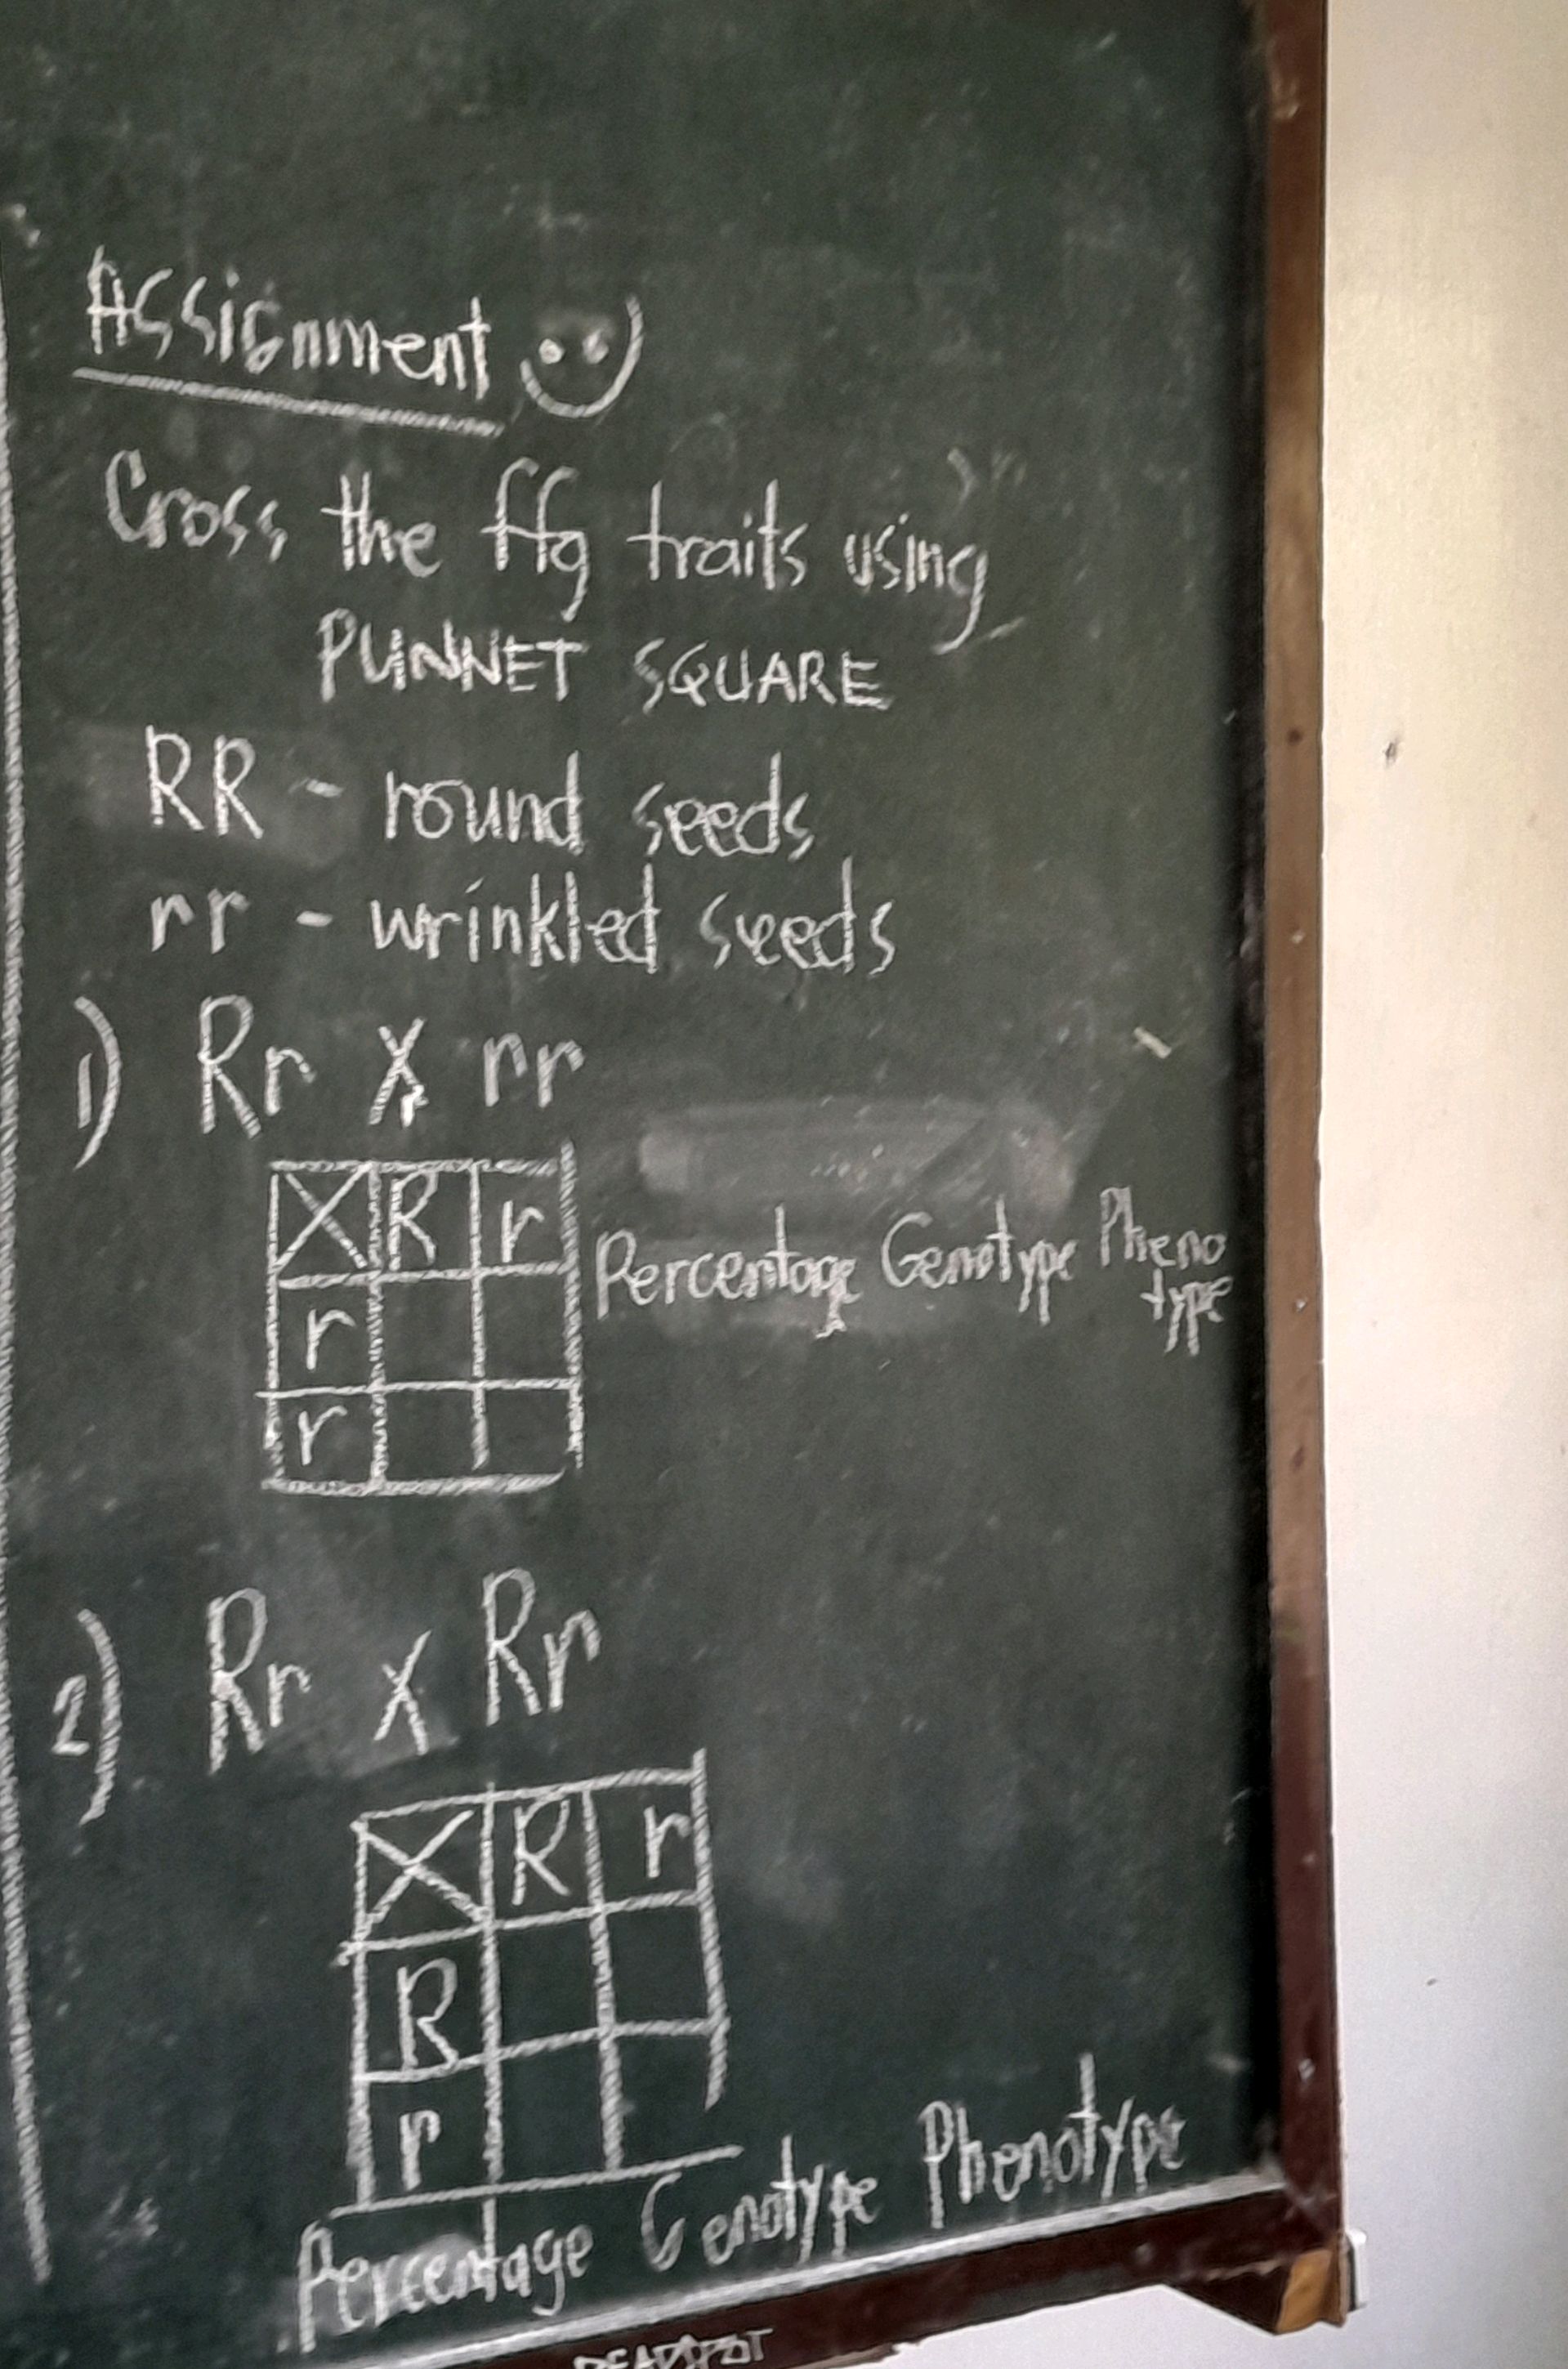 Assignment
Cross the ffg traits using
PUNNET SQUARE
RR - round seeds
rr - wrinkled seeds
1) Rr X rr
X R r
r
r
Percentage Genotype Pheno
type
2) Rr x Rr
X R r
R
r
Percentage Genotype Phenotype